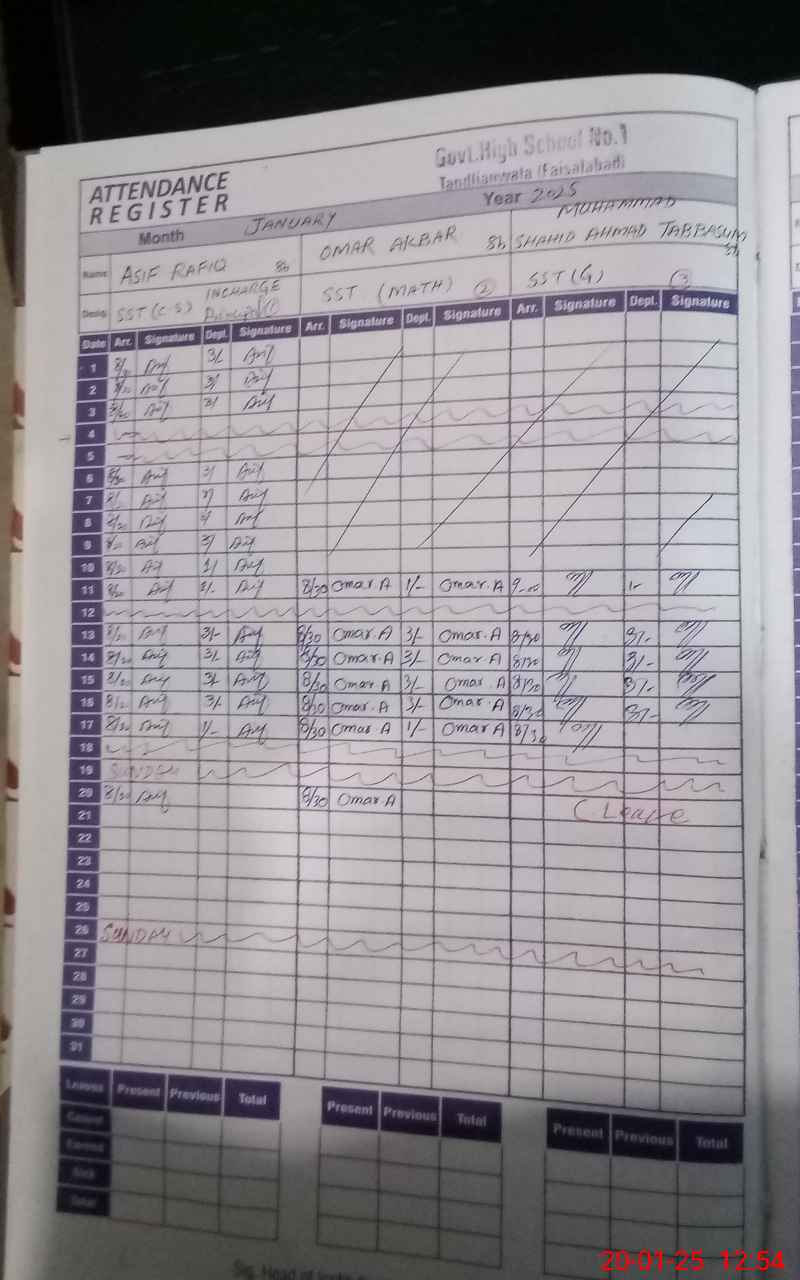 Govt.High School No.1
Tandlianwala (Faisalabad)
ATTENDANCE
REGISTER
Month JANUARY Year 2025
Name: ASIF RAFIQ OMAR AKBAR MUHAMMAD
SHAHID AHMAD TABBASUM
Desig: SST (C.S) INCHARGE SST (MATH) 2 SST (G) 3
Principal 1
Date Arr. Signature Dept. Signature Arr. Signature Dept. Signature Arr. Signature Dept. Signature
1 8/20 Asif 3/- Asif
2 8/20 Asif 3/ Asif
3 8/20 Asif 3/ Asif
4
5
6 8/20 Asif 3/ Asif
7 8/ Asif Asif
8 8/20 Asif Asif
9 8/20 Asif 3/ Asif
10 8/20 Asif 1/ Asif
11 8/20 Asif 1/- Asif 8/30 Omar.A 1/- Omar.A 9-00 1-
12
13 8/20 Asif 3/- Asif 8/30 Omar.A 3/- Omar.A 8/30 3/-
14 8/20 Asif 3/- Asif 8/30 Omar.A 3/- Omar.A 8/30 3/-
15 8/20 Asif 3/- Asif 8/30 Omar.A 3/- Omar.A 8/30 3/-
16 8/20 Asif 3/- Asif 8/30 Omar.A 3/- Omar.A 8/30 3/-
17 8/20 Asif 1/- Asif 8/30 Omar.A 1/- Omar.A 8/30
18
19 SUNDAY
20 8/20 Asif 8/30 Omar.A C.Leave
21
22
23
24
25
26 SUNDAY
27
28
29
30
31
Leaves Present Previous Total Present Previous Total Present Previous Total
Casual
Earned
Sick
Total
Sig. Head of
20-01-25 12:54